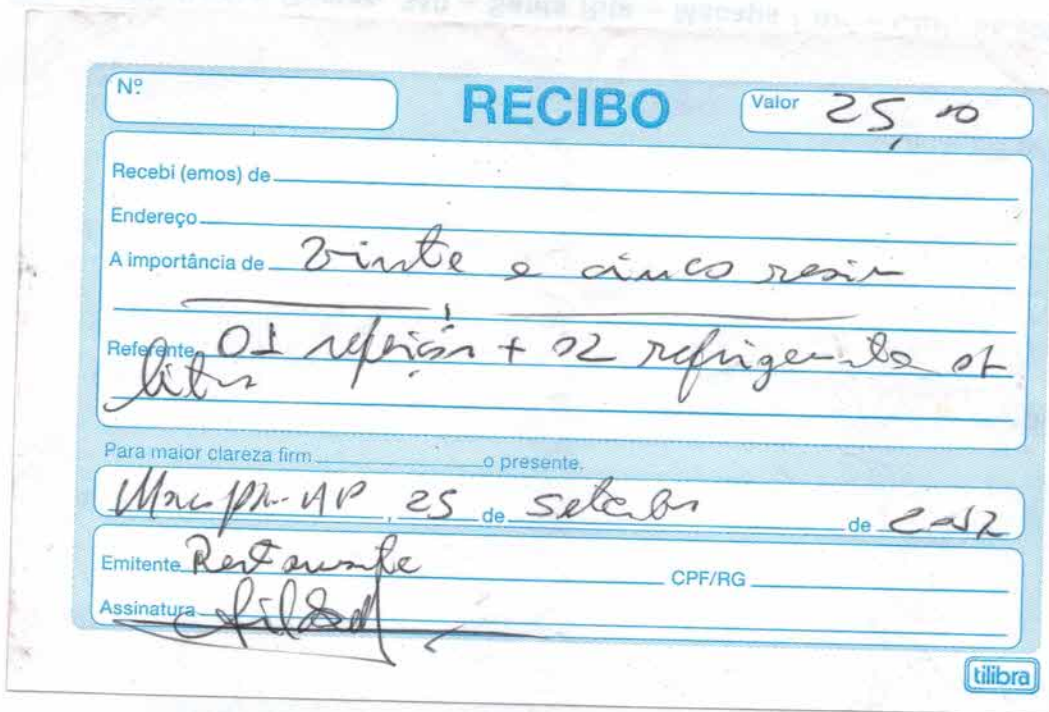 Nº
RECIBO
Valor 25,00
Recebi (emos) de
Endereço
A importância de Vinte e cinco reais
Referente 01 refeição + 02 refrigerante
litro
Para maior clareza firm o presente.
Macapá-AP, 25 de setembro de 2012
Emitente Restaurante CPF/RG
Assinatura
tilibra